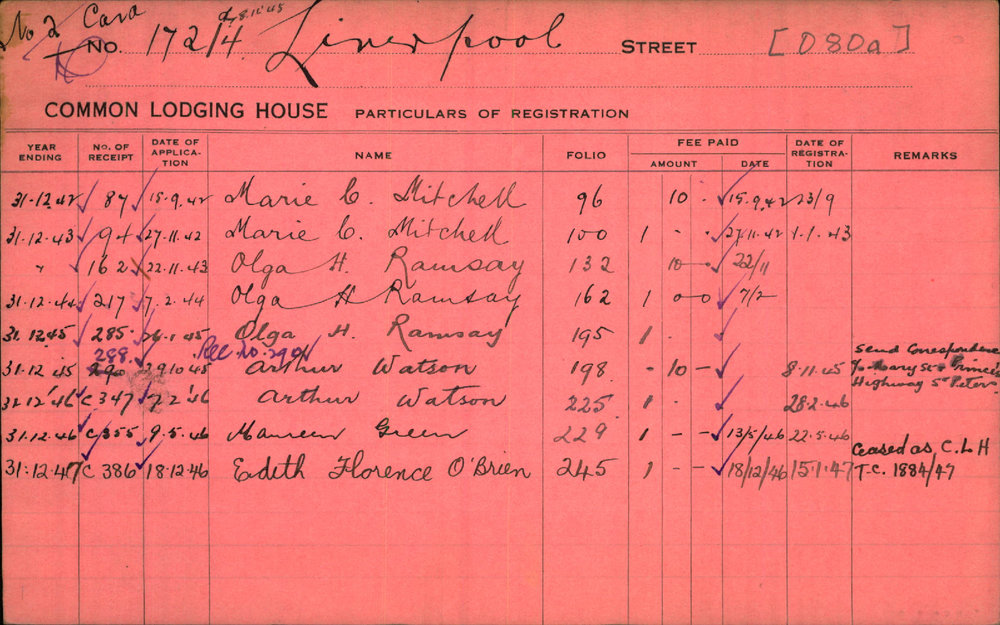 No 2 Card
No. 172/4 8.11.45 Liverpool STREET [D80a]
COMMON LODGING HOUSE PARTICULARS OF REGISTRATION
YEAR ENDING NO. OF RECEIPT DATE OF APPLICATION NAME FOLIO FEE PAID AMOUNT DATE DATE OF REGISTRATION REMARKS
31-12.42 87 15.9.42 Marie C. Mitchell 96 10 . 15.9.42 23/9
31.12.43 94 27.11.42 Marie C. Mitchell 100 1 - - 27.11.42 1.1.43
" 162 22.11.43 Olga H. Ramsay 132 10 — 22/11
31.12.44 217 7.2.44 Olga H Ramsay 162 1 0 0 7/2
31.12.45 285 .1.45 Olga H. Ramsay 195 1 .
288 Rec No. 290
31.12.45 290 29.10.45 Arthur Watson 198 - 10 - 8.11.45 Send Correspondence c/o Mary St & Princes Highway St Peters
31.12.46 C 347 7.2.46 Arthur Watson 225 1 - 28.2.46
31.12.46 C 355 9.5.46 Maureen Green 229 1 - - 13/5/46 22.5.46
31.12.47 C 386 18.12.46 Edith Florence O'Brien 245 1 - - 18/12/46 15.1.47 Ceased as C.L.H T.C. 1884/47